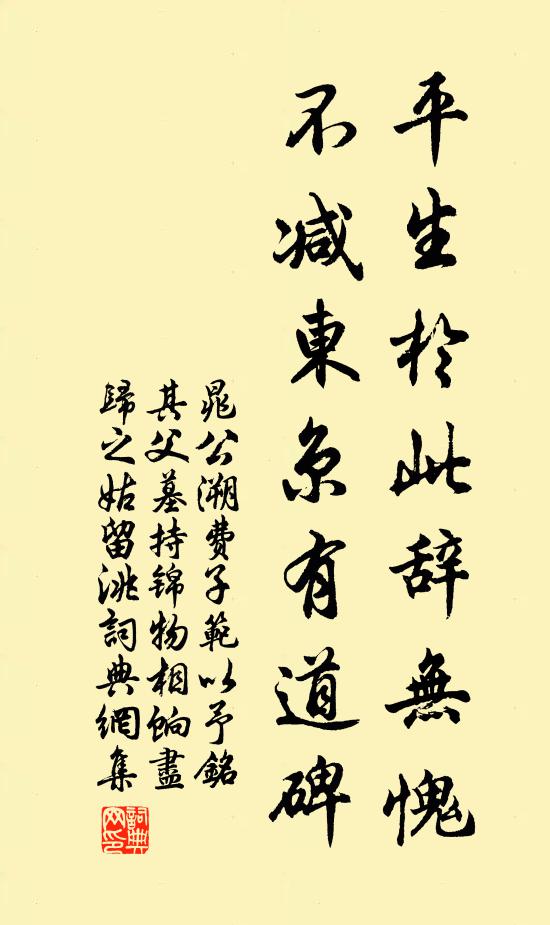 平生於此辞無愧
不减東京有道碑
晁公溯費子範以予銘
其父墓持錦物相餉盡
歸之姑留洮詞典網集
詞典網印